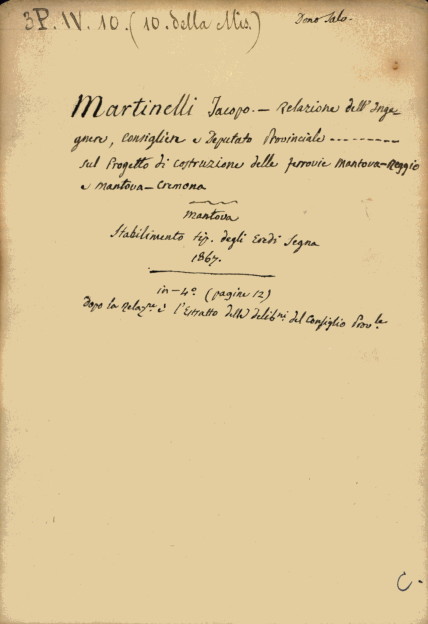 3P. IV. 10. (10. della Mis.)
Dono Salo.
Martinelli Jacopo. — Relazione dell'Inge-
gnere, Consigliere e Deputato Provinciale ---------
sul Progetto di costruzione delle ferrovie Mantova-Reggio
e Mantova-Cremona
Mantova
Stabilimento tip. degli Eredi Segna
1867.
in-4° (pagine 12)
Dopo la Relazne è l'Estratto delle delibni del Consiglio Provle
C.